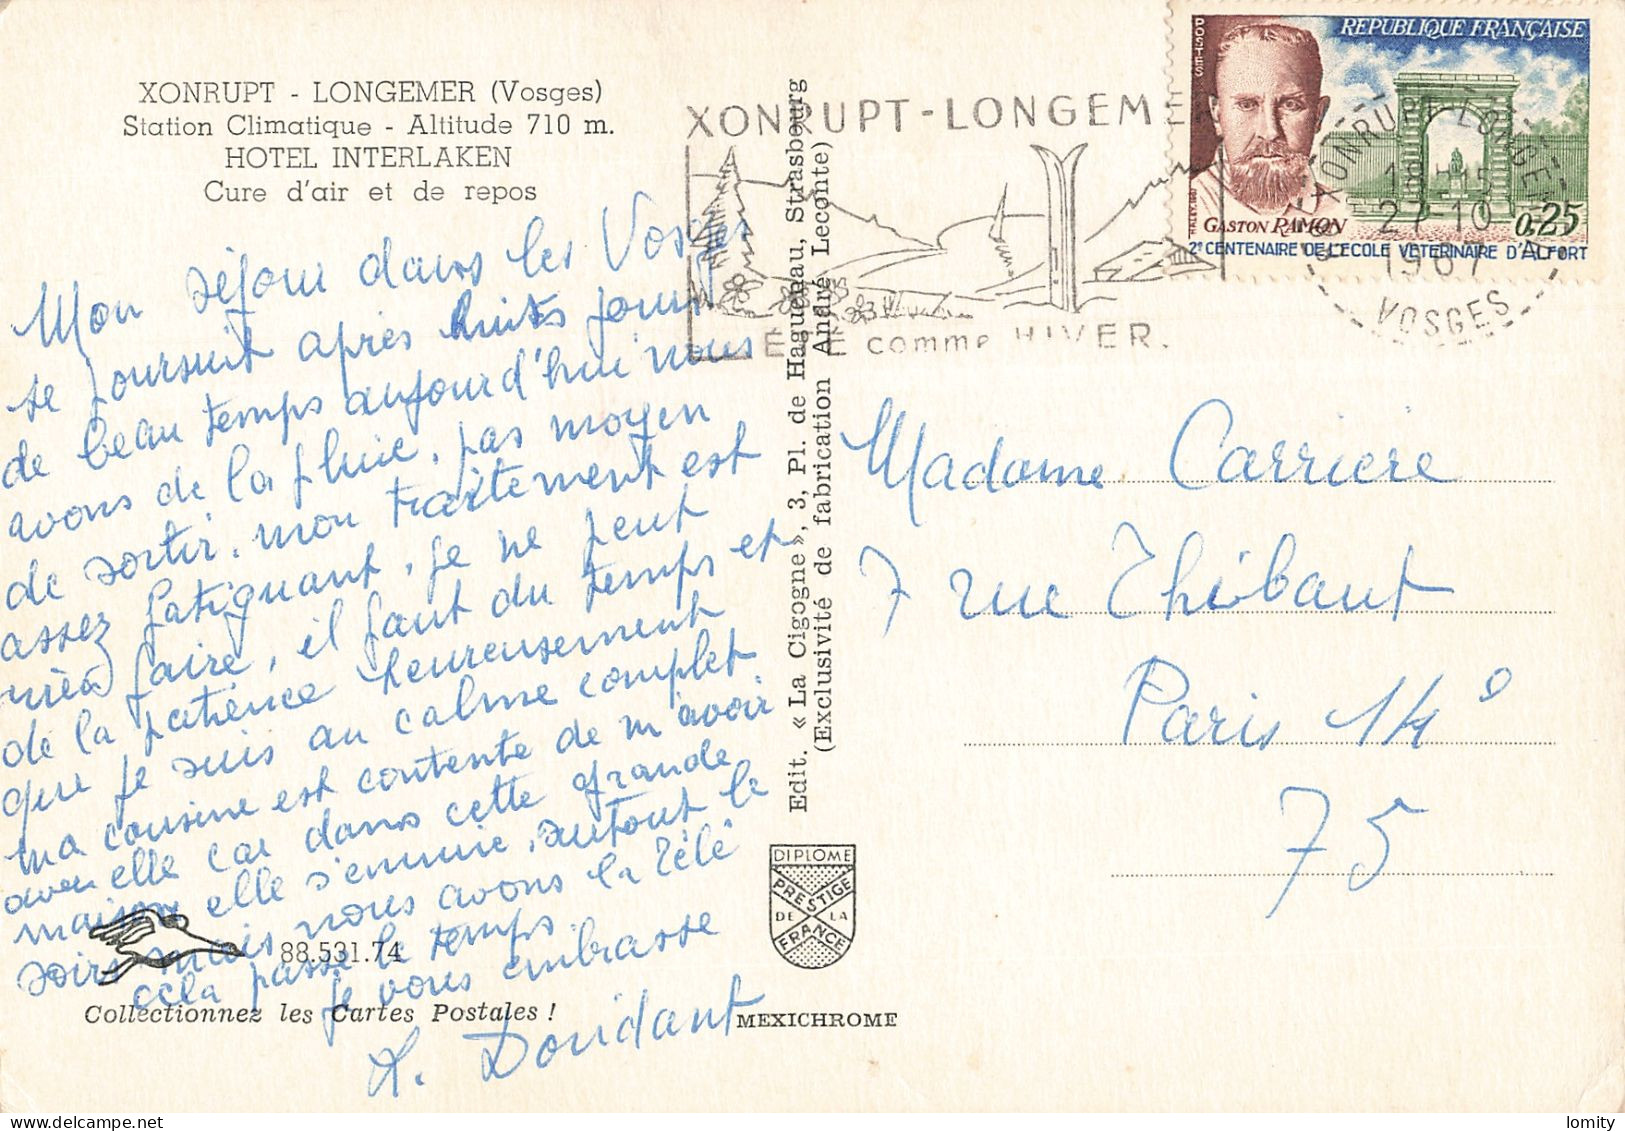 XONRUPT - LONGEMER (Vosges)
Station Climatique - Altitude 710 m.
HOTEL INTERLAKEN
Cure d'air et de repos
Mon séjour dans les Vosges
se poursuit après huits jours
de beau temps aujourd'hui nous
avons de la pluie, pas moyen
de sortir. mon traitement est
assez fatiguant, je ne peut
rien faire, il faut du temps et
de la patience heureusement
que je suis au calme complet
ma cousine est contente de m'avoir
avec elle car dans cette grande
maison elle s'ennuie, surtout le
soirs mais nous avons la télé
cela passe le temps
je vous embrasse
Doridant
88.531.74
Collectionnez les Cartes Postales !
MEXICHROME
Edit. « La Cigogne », 3, Pl. de Haguenau, Strasbourg
(Exclusivité de fabrication André Leconte)
DIPLOME
PRESTIGE
DE LA
FRANCE
XONRUPT-LONGEME
comme HIVER.
POSTES
REPUBLIQUE FRANÇAISE
GASTON RAMON
0,25
2e CENTENAIRE DE L'ECOLE VETERINAIRE D'ALFORT
XONRUPT-LONGEMER
1967
VOSGES
Madame Carriere
7 rue Thibaut
Paris 14e
75
lomity